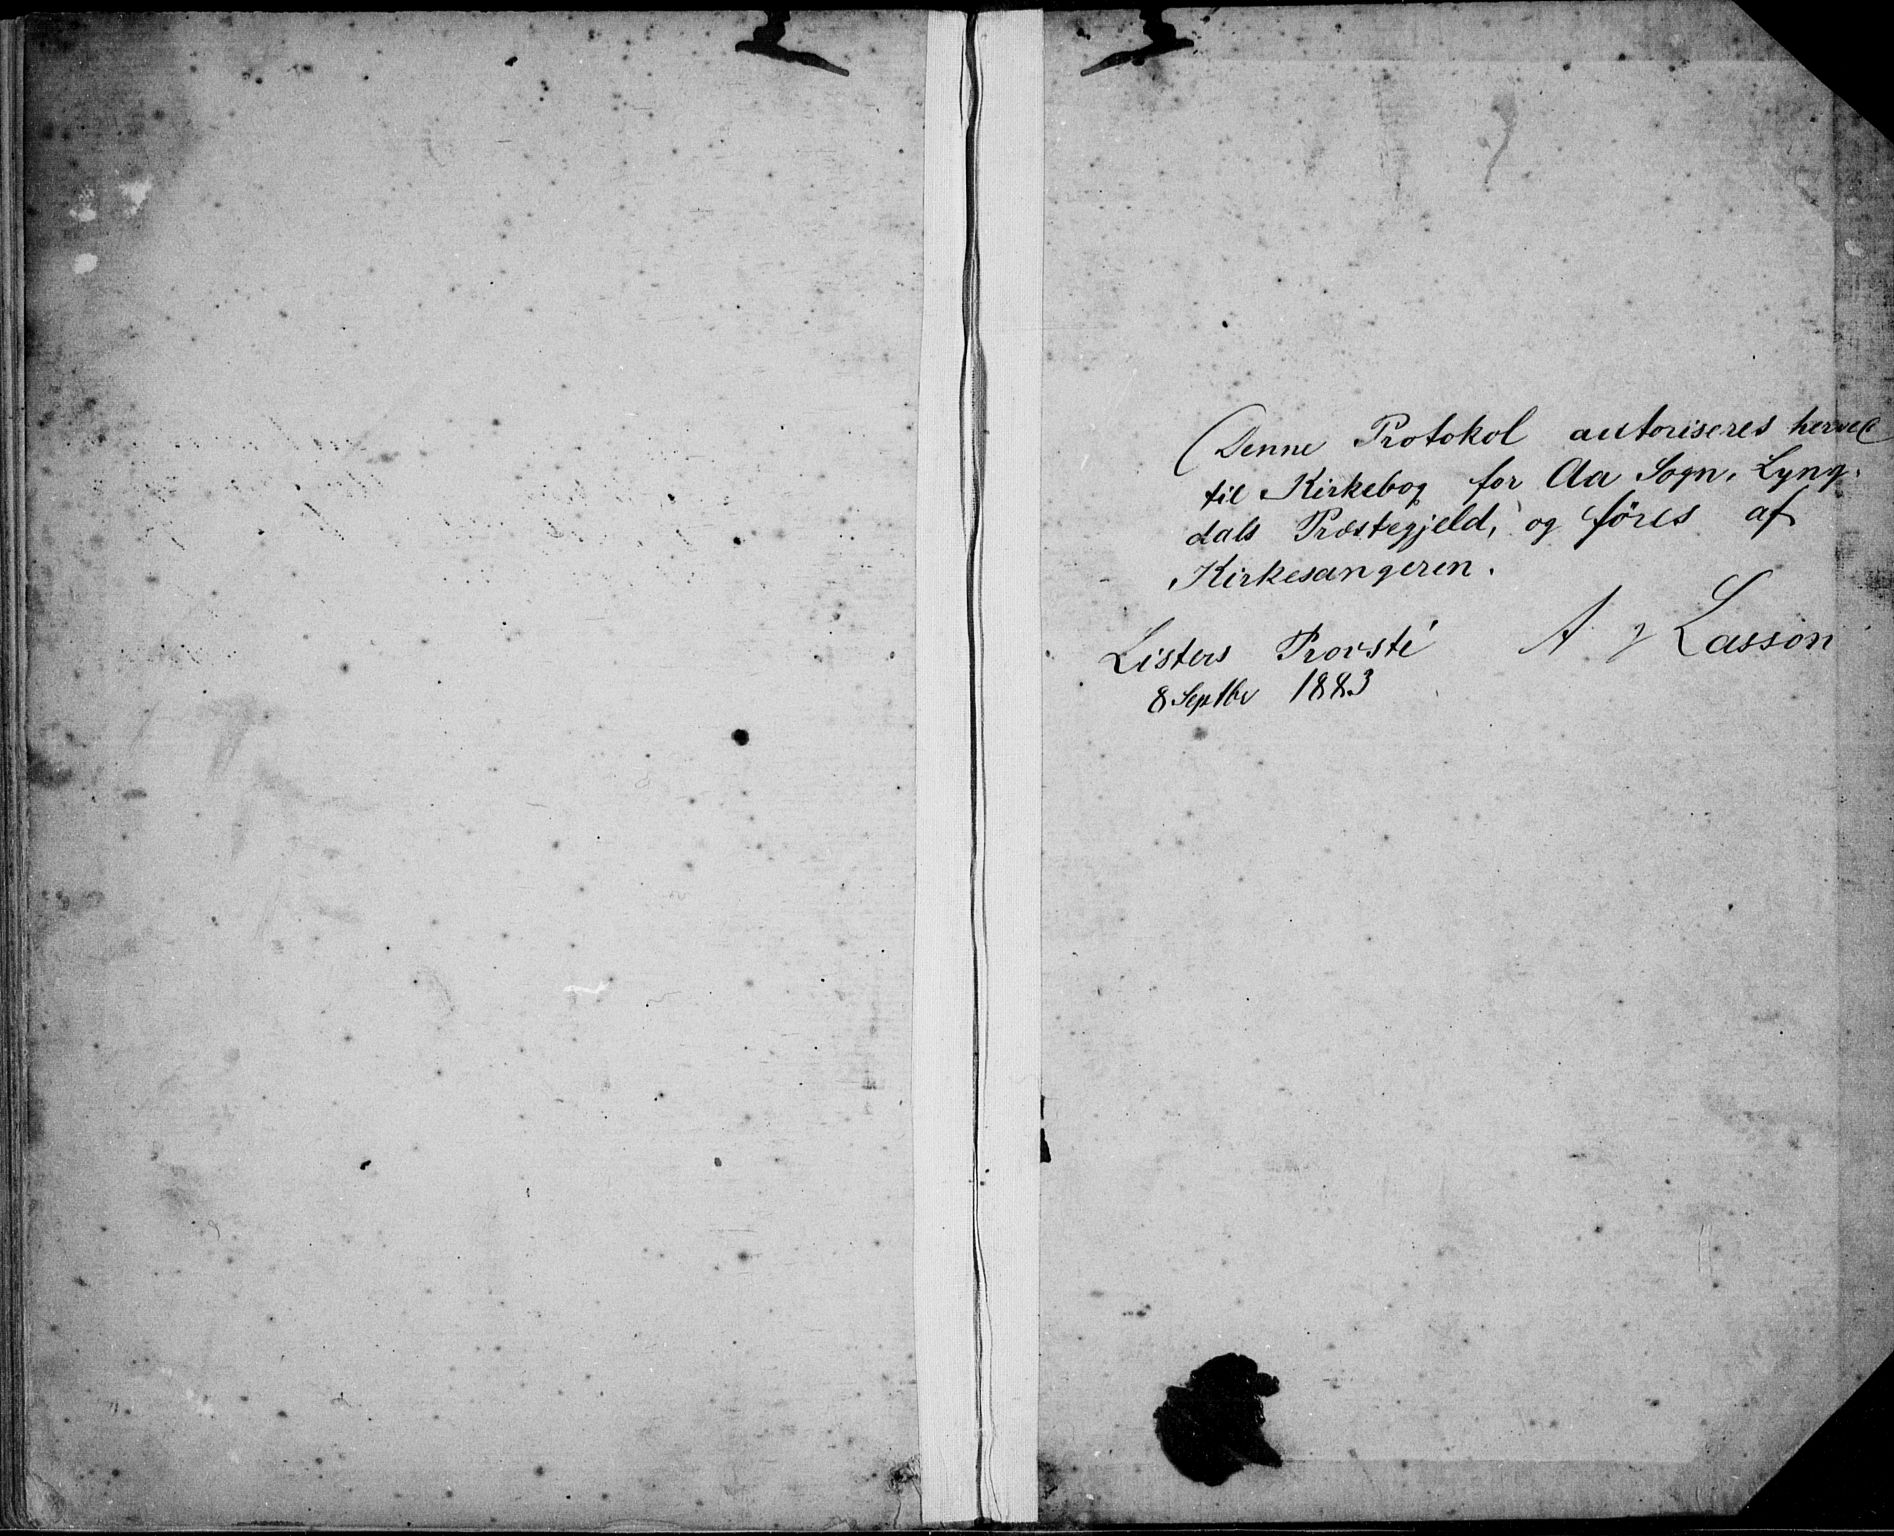 Denne Protokol autoriseres herved
til Kirkebog for Aa Sogn, Lyng-
dals Præstegjeld, og føres af
Kirkesangeren.
Listers Provsti A Lasson
8 Septbr 1883